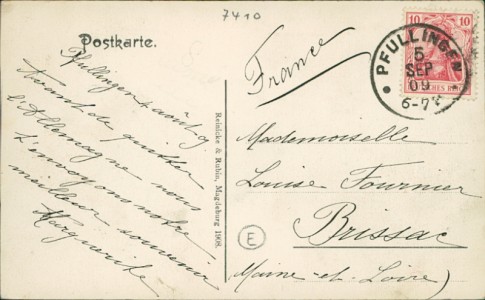 7410
Postkarte.
Pfullingen 4 août 09
Avant de quitter
l'Allemagne nous
t'envoyons notre
meilleur souvenir
Marguerite
Reinicke & Rubin, Magdeburg 1908.
France
10 10
PFULLINGEN
5
SEP
09
6-7
Mademoiselle
Louise Fournier
Brissac
(Maine-et-Loire)
E